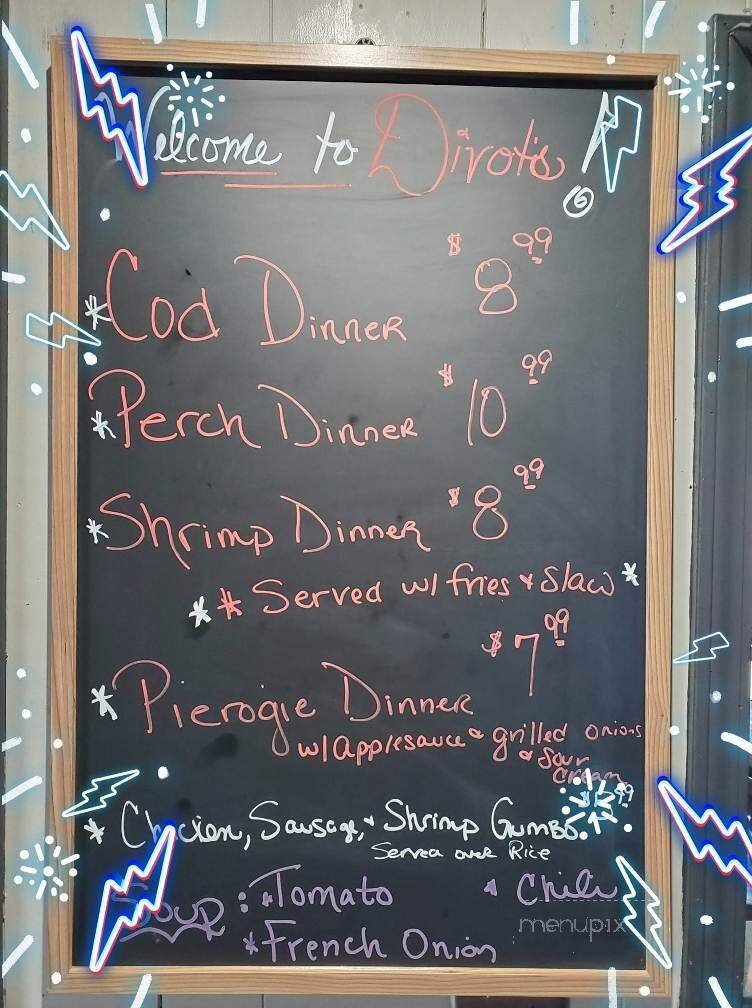 Welcome to Divots
* Cod Dinner $8.99
* Perch Dinner $10.99
* Shrimp Dinner $8.99
** Served w/ fries & slaw *
* Pierogie Dinner $7.99
w/ applesauce & grilled onions
& Sour
Cream
* Chicken, Sausage, & Shrimp Gumbo
Served over Rice
Soup: * Tomato * Chili
* French Onion
menupix